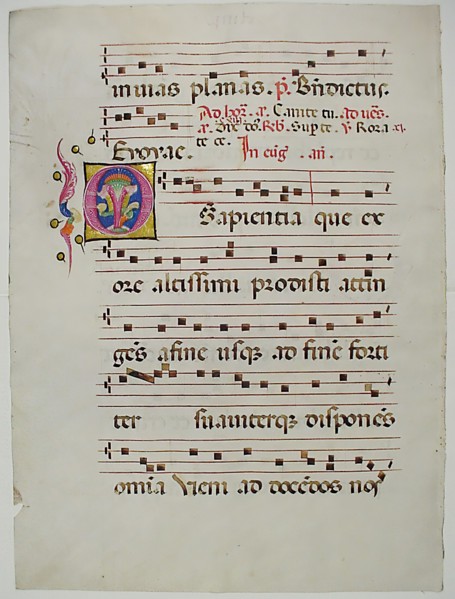 in uias planas. p̃. Bñdictus.
Ad hoꝛ̃. a. Canite tu. ad ues̃.
a. Reb̃. Sup te. ỹ. Roꝛa
te ce. In eug̃. añ.
Euouae.
O Sapientia que ex
ore altissimi prodisti attin
ges̃ afine usqꝫ ad finẽ forti
ter suauiterqꝫ disponẽs
omĩa Veni ad docẽdos nos